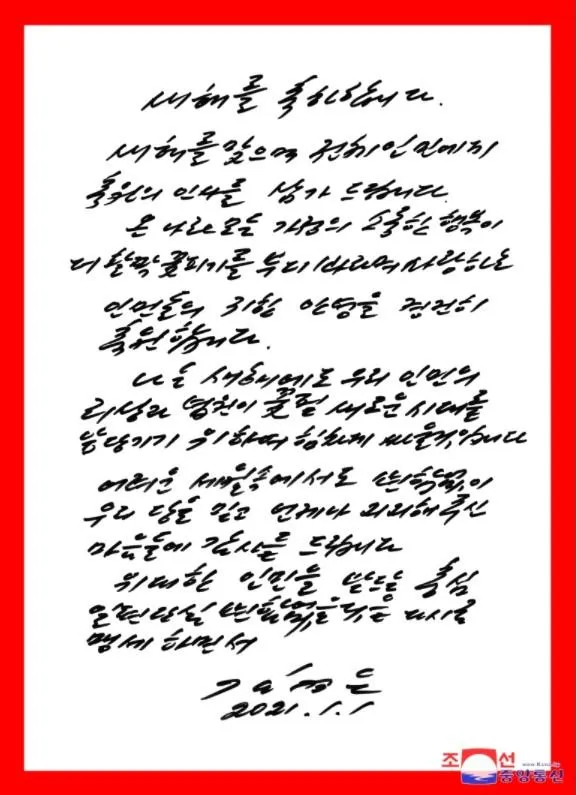 새해를 축하합니다.
새해를 맞으며 전체 인민에게
축원의 인사를 삼가 드립니다.
온 나라 모든 가정의 소중한 행복이
더 활짝 꽃피기를 부디 바라며 사랑하는
인민들의 귀한 안녕을 경건히
축원합니다.
나는 새해에도 우리 인민의
리상과 념원이 꽃필 새로운 시대를
앞당기기 위하여 힘차게 싸울것입니다
어려운 세월속에서도 변함없이
우리 당을 믿고 언제나 지지해주신
마음들에 감사를 드립니다
위대한 인민을 받드는 충심
일편단심 변함없을것을 다시금
맹세하면서
김정은
2021.1.1
조선
www.kcna.kp
중앙통신